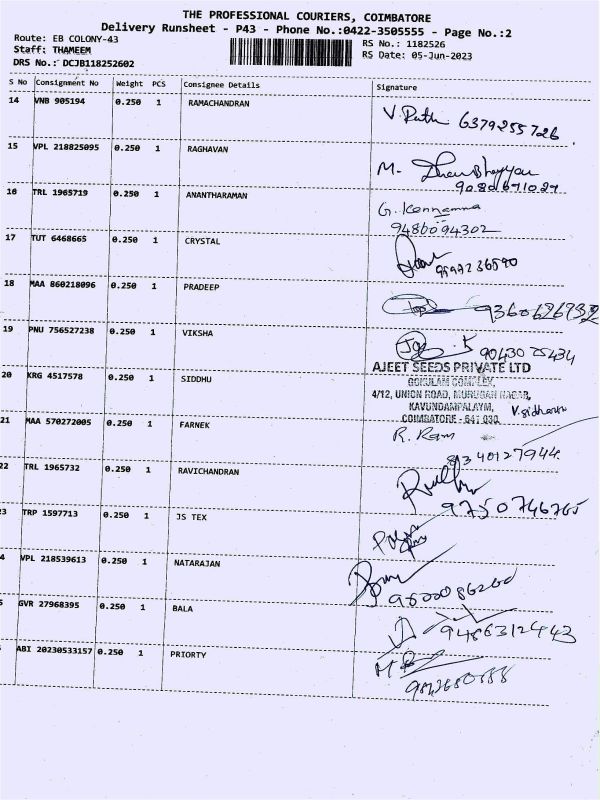 THE PROFESSIONAL COURIERS, COIMBATORE
Delivery Runsheet - P43 - Phone No.:0422-3505555 - Page No.:2
Route: EB COLONY-43
RS No.: 1182526
Staff: THAMEEM
RS Date: 05-Jun-2023
DRS No.: DCJB118252602
S No Consignment No Weight PCS Consignee Details Signature
14 VNB 905194 0.250 1 RAMACHANDRAN
6379255726
15 VPL 218825095 0.250 1 RAGHAVAN
M.
16 TRL 1965719 0.250 1 ANANTHARAMAN
G. Kannamma
9486094302
17 TUT 6468665 0.250 1 CRYSTAL
18 MAA 860218096 0.250 1 PRADEEP
19 PNU 756527238 0.250 1 VIKSHA
AJEET SEEDS PRIVATE LTD
20 KRG 4517578 0.250 1 SIDDHU
GOKULAM COMPLEX,
4/12, UNION ROAD, MURUGAN NAGAR,
KAVUNDAMPALAYM,
COIMBATORE - 641 030.
21 MAA 570272005 0.250 1 FARNEK
R. Ram
22 TRL 1965732 0.250 1 RAVICHANDRAN
9750746765
3 TRP 1597713 0.250 1 JS TEX
4 VPL 218539613 0.250 1 NATARAJAN
5 GVR 27968395 0.250 1 BALA
9486312443
ABI 20230533157 0.250 1 PRIORTY